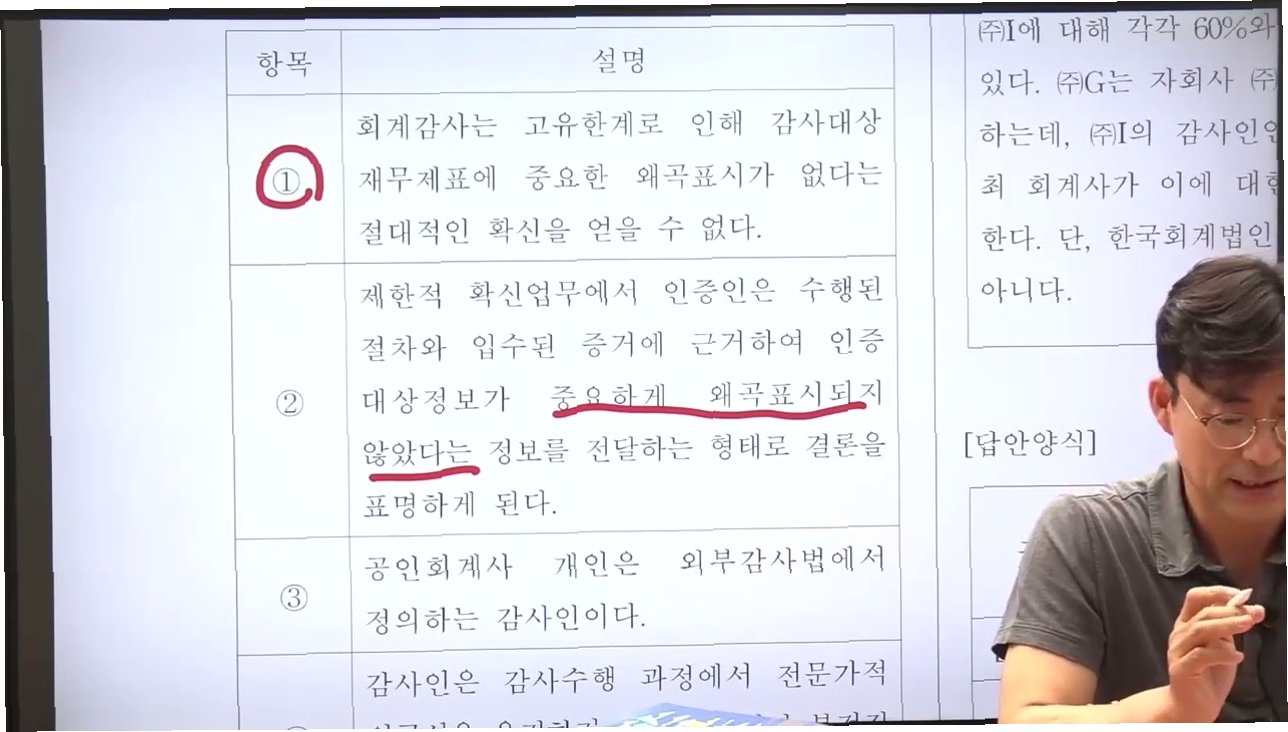 항목
설명
①
회계감사는 고유한계로 인해 감사대상
재무제표에 중요한 왜곡표시가 없다는
절대적인 확신을 얻을 수 없다.
②
제한적 확신업무에서 인증인은 수행된
절차와 입수된 증거에 근거하여 인증
대상정보가 중요하게 왜곡표시되지
않았다는 정보를 전달하는 형태로 결론을
표명하게 된다.
③
공인회계사 개인은 외부감사법에서
정의하는 감사인이다.
감사인은 감사수행 과정에서 전문가적
㈜I에 대해 각각 60%와
있다. ㈜G는 자회사
하는데, ㈜I의 감사인인
최 회계사가 이에 대한
한다. 단, 한국회계법인
아니다.
[답안양식]